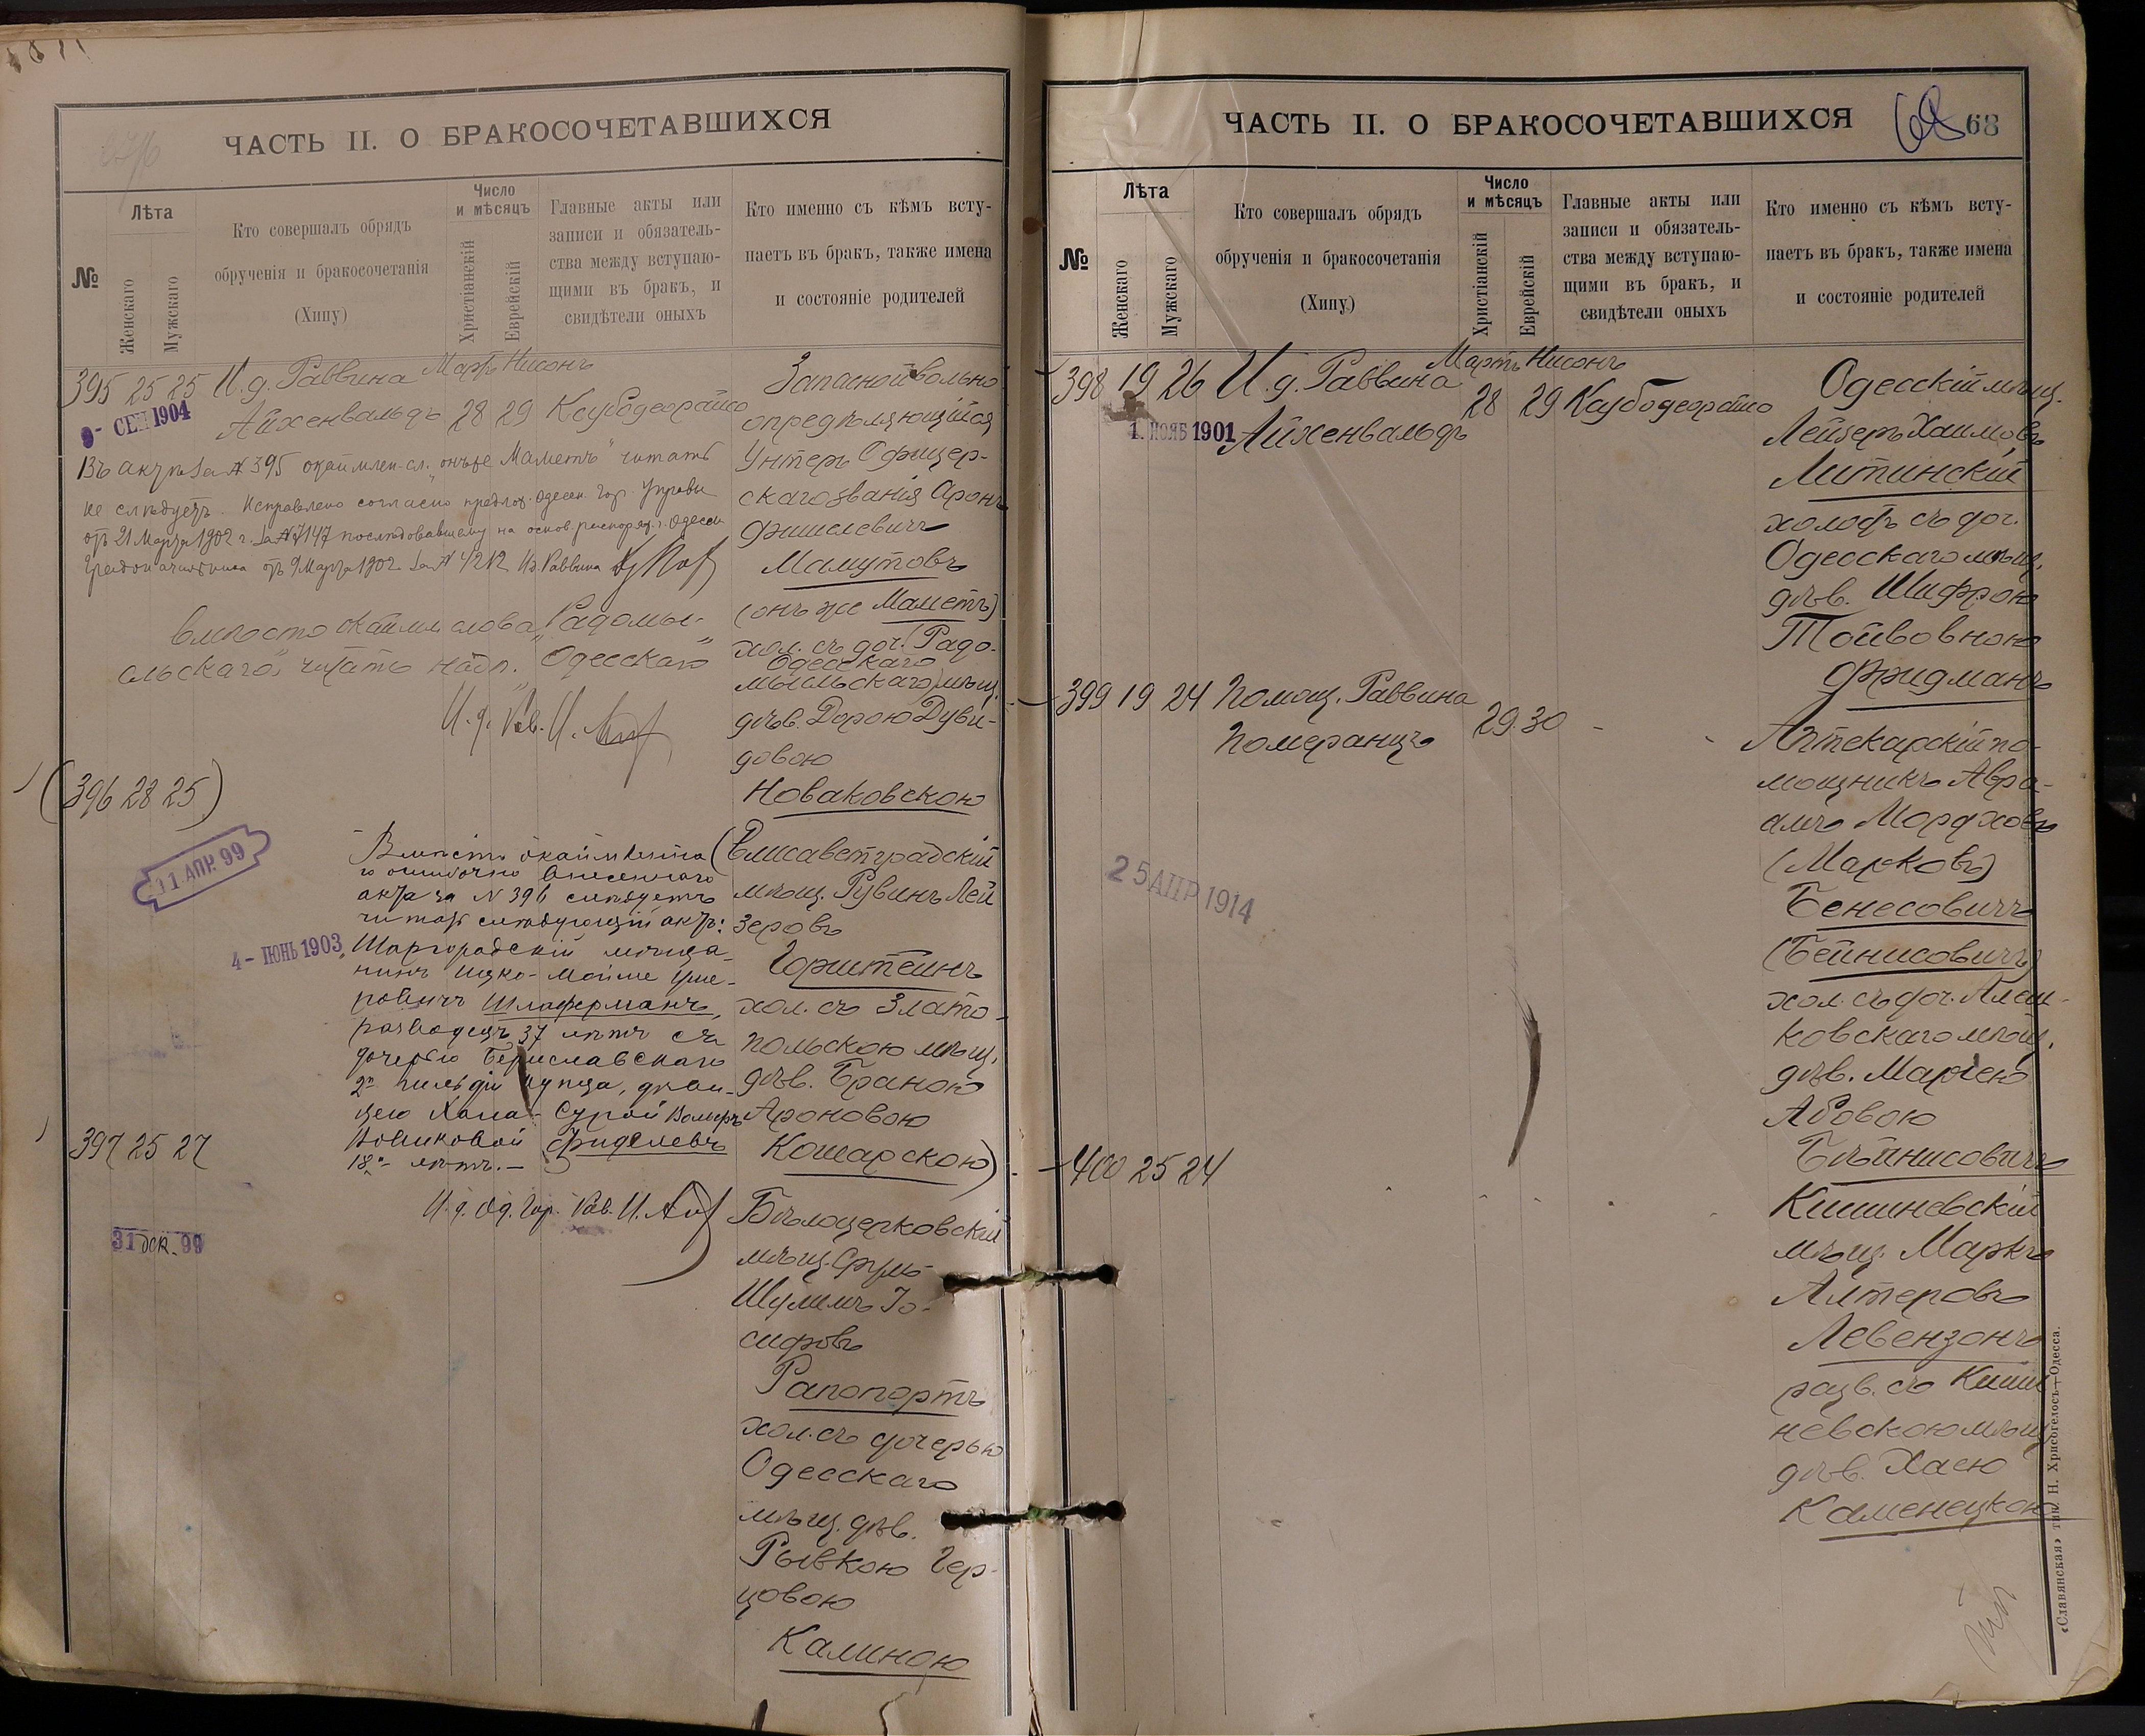 ЧАСТЬ II. О БРАКОСОЧЕТАВШИХСЯ
№
Лѣта
Женскаго
Мужскаго
Кто совершалъ обрядъ
обрученія и бракосочетанія
(Хипу)
Число
и мѣсяцъ
Христіанскій
Еврейскій
Главные акты или
записи и обязатель-
ства между вступаю-
щими въ бракъ, и
свидѣтели оныхъ
Кто именно съ кѣмъ всту-
паетъ въ бракъ, также имена
и состояніе родителей
395 25 25 И.д. Раввина
Айхенвальдъ
Мартъ Нисонъ
28 29
9- СЕН 1904
Въ актѣ за № 395 окаймлен. сл. "онъ же Маметъ" читать
не слѣдуетъ. Исправлено согласно предлож. Одесск. Гор. Управы
отъ 21 Марта 1902 г. за № 7147 послѣдовавшему на основ. распоряж. г. Одесск.
Градоначальника отъ 9 Марта 1902 за № 4212 И.д. Раввина
вмѣсто окаймл. слова "Радомы-
сльскаго" читать надп. "Одесскаго"
И. д. Рав. И.
Запасной вольно
опредѣляющійся
Унтеръ Офицер-
скаго званія Аронъ
Фишелевичъ
Мамутовъ
(онъ же Маметъ)
хол. съ доч. (Радо-
Одесскаго
мысльскаго) мѣщ.
дѣв. Дорою Дуви-
довою
Новаковскою
(396 28 25)
11 АПР. 99
4- ІЮНЬ 1903
Вмѣсто окаймленна
го ошибочно внесеннаго
акта за № 396 слѣдуетъ
читать слѣдующій актъ:
Шаргородскій мѣща-
нинъ Ицко-Мойше Уше-
ровичъ Шлаферманъ,
разводецъ 37 лѣтъ съ
дочерью Бериславскаго
2й гильдіи купца, дѣви-
цею Хана-Сурой Вольфъ
Вольковой Фиделевъ
18ти лѣтъ.-
И. д. Од. Гор. Рав. И.
(Елисаветградскій
мѣщ. Рувинъ Лей
зеровъ
Горштейнъ
хол. съ Злато-
польскою мѣщ.
дѣв. Браною
Ароновою
Кошарскою)
397 25 27
31 дек. 99
Бѣлоцерковскій
мѣщ. Сруль
Шулимъ Іо-
сифовъ
Рапопортъ
хол. съ дочерью
Одесскаго
мѣщ. дѣв.
Рывкою Гер-
цовою
Калиною
ЧАСТЬ II. О БРАКОСОЧЕТАВШИХСЯ
68 68
№
Лѣта
Женскаго
Мужскаго
Кто совершалъ обрядъ
обрученія и бракосочетанія
(Хипу)
Число
и мѣсяцъ
Христіанскій
Еврейскій
Главные акты или
записи и обязатель-
ства между вступаю-
щими въ бракъ, и
свидѣтели оныхъ
Кто именно съ кѣмъ всту-
паетъ въ бракъ, также имена
и состояніе родителей
398 19 26 И.д. Раввина
Айхенвальдъ
Мартъ Нисонъ
28 29
1. НОЯБ 1901
Одесскій мѣщ.
Лейзеръ Хаимовъ
Литинскій
холост. съ доч.
Одесскаго мѣщ.
дѣв. Шифрою
Тойвовною
Фридманъ
399 19 24 Помощ. Раввина
Померанцъ
29. 30 -
25 АПР 1914
Аптекарскій по-
мощникъ Авра-
амъ Мордховъ
(Марковъ)
Бенесовичъ
(Бейнисовичъ)
хол. съ доч. Алеш-
ковскаго мѣщ.
дѣв. Маріею
Абовою
Бѣйнисовичъ
400 25 24
Кишиневскій
мѣщ. Маркъ
Алтеровъ
Левензонъ
разв. съ Киши
невскою мѣщ
дѣв. Хаею
Каменецкою
«Славянская» тип. Н. Хрисогелосъ—Одесса.